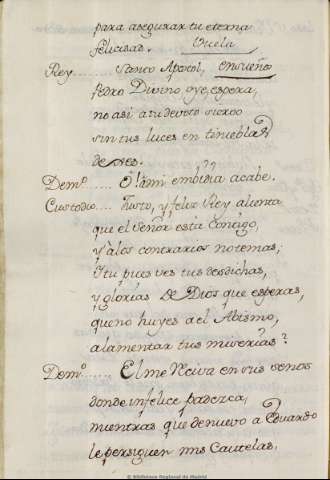 para asegurar tu eterna
felicidad. Vuela
Rey...... Santo Apostol, en sueños
Pedro Divino oye, espera,
no asi a tu devoto siervo
sin tus luces en tinieblas
dexes.
Demº..... O! a mi embidia acabe.
Custodio.... Justo, y feliz Rey alienta
que el Señor está contigo,
y à los contrarios no temas;
Y tu pues ves tus desdichas,
y glorias de Dios que esperas,
que no huyes a el Abismo,
a lamentar tus miserias?
Demº...... El me reciva en sus senos
donde infelice padezca,
mientras que de nuevo a Eduardo
le persiguen mis Cautelas.
© Biblioteca Regional de Madrid